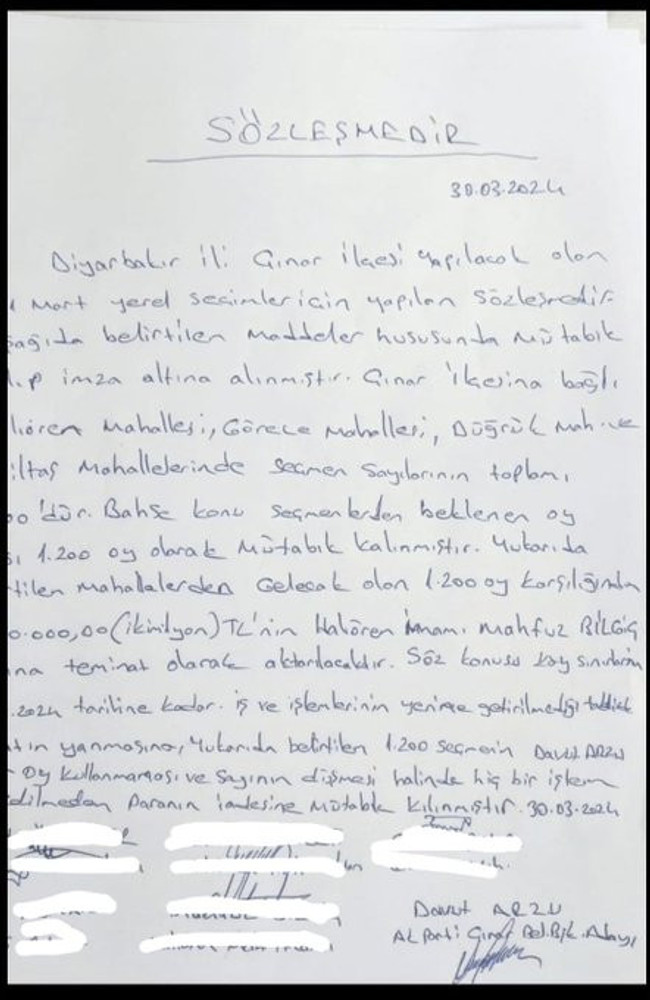 SÖZLEŞMEDİR
30.03.2024
Diyarbakır ili Çınar ilçesi yapılacak olan
Mart yerel seçimler için yapılan sözleşmedir.
şağıda belirtilen maddeler hususunda mütabık
ıp imza altına alınmıştır. Çınar ilçesine bağlı
ören Mahallesi, Görece Mahallesi, Düğrük Mah. ve
iltaş Mahallelerinde seçmen sayılarının toplamı
00'dür. Bahse konu seçmenlerden beklenen oy
ı, 1.200 oy olarak Mütabık kalınmıştır. Yukarıda
tilen mahallelerden gelecek olan 1.200 oy karşılığında
0.000,00 (ikimilyon) TL'nin Halören imamı Mahfuz BİLGİÇ
ına teminat olarak aktarılacaktır. Söz konusu köy sınırların
.2024 tarihine kadar. iş ve işlemlerinin yerine getirilmediği takdirde
tın yanmasına, Yukarıda belirtilen 1.200 seçmenin Davut ARZU
oy kullanmaması ve sayının düşmesi halinde hiç bir işlem
edilmeden Paranın iadesine mütabık kılınmıştır. 30.03.2024
Davut ARZU
AK Parti Çınar Bel. Bşk. Adayı